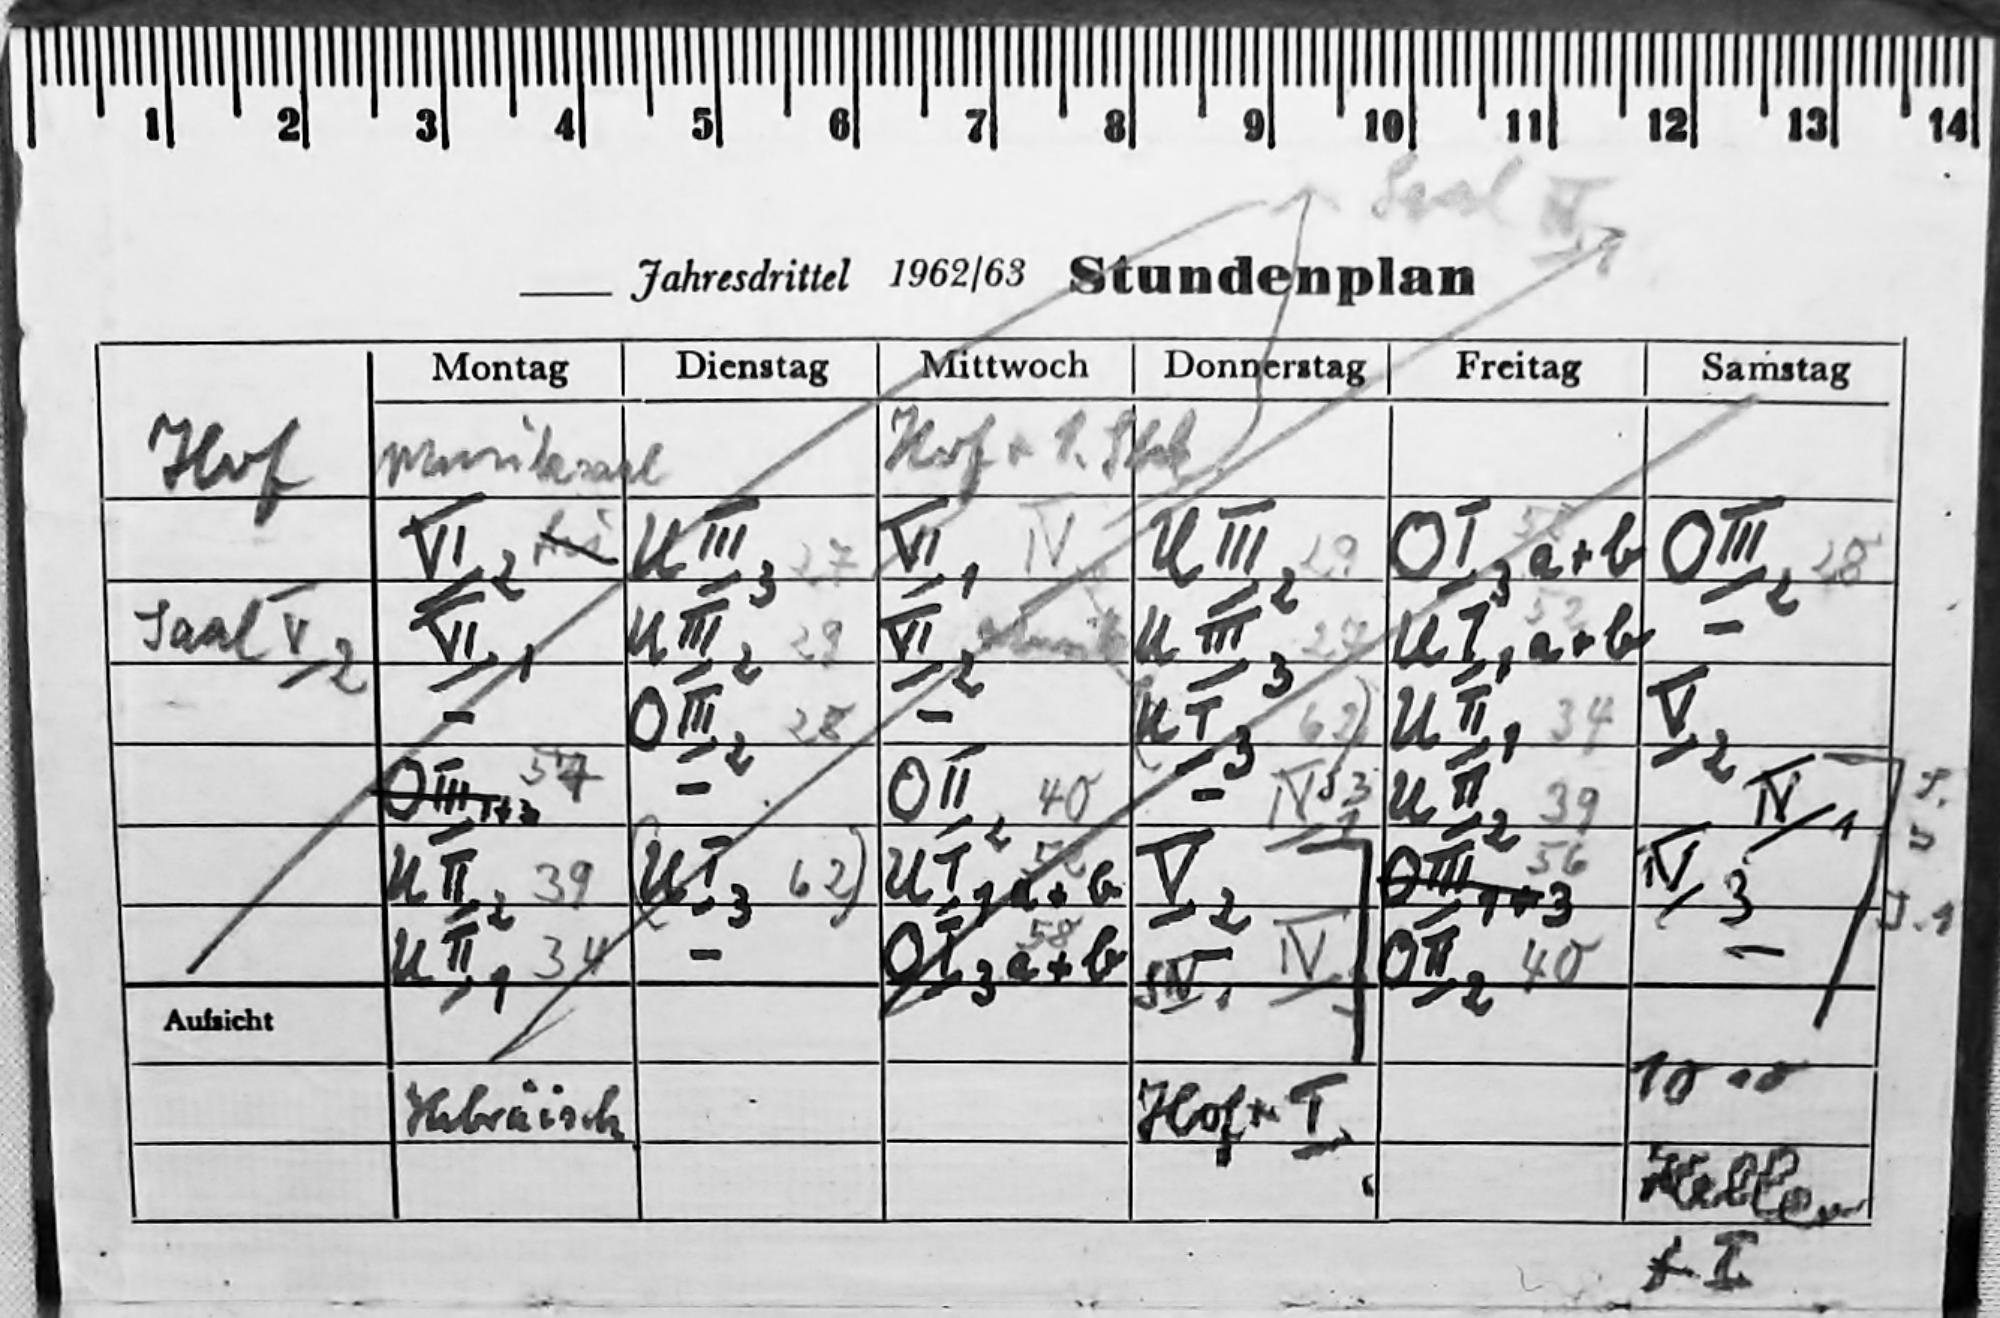 1 2 3 4 5 6 7 8 9 10 11 12 13 14
Saal IV 1
Jahresdrittel 1962/63 Stundenplan
Montag Dienstag Mittwoch Donnerstag Freitag Samstag
Hof Musiksaal Hof + 1. Stck
VI 2 U III 3 27 VI 1 IV U III 2 29 O I 3 58 a+b O III 2 28
Saal V 2 VI 1 U III 2 29 VI 2 U III 3 27 U I 1 52 a+b -
- O III 2 28 - (U I 3 62) U II 1 34 V 2
O III 1+3 57 - O II 2 40 - IV 3 U II 2 39 IV 1
U II 2 39 (U I 3 62) U I 1 52 a+b V 2 O III 1+3 56 IV 3
U II 1 34 - O I 3 58 a+b - IV O II 2 40 -
IV 1
Aufsicht
10
Hebräisch Hof + I
+ I